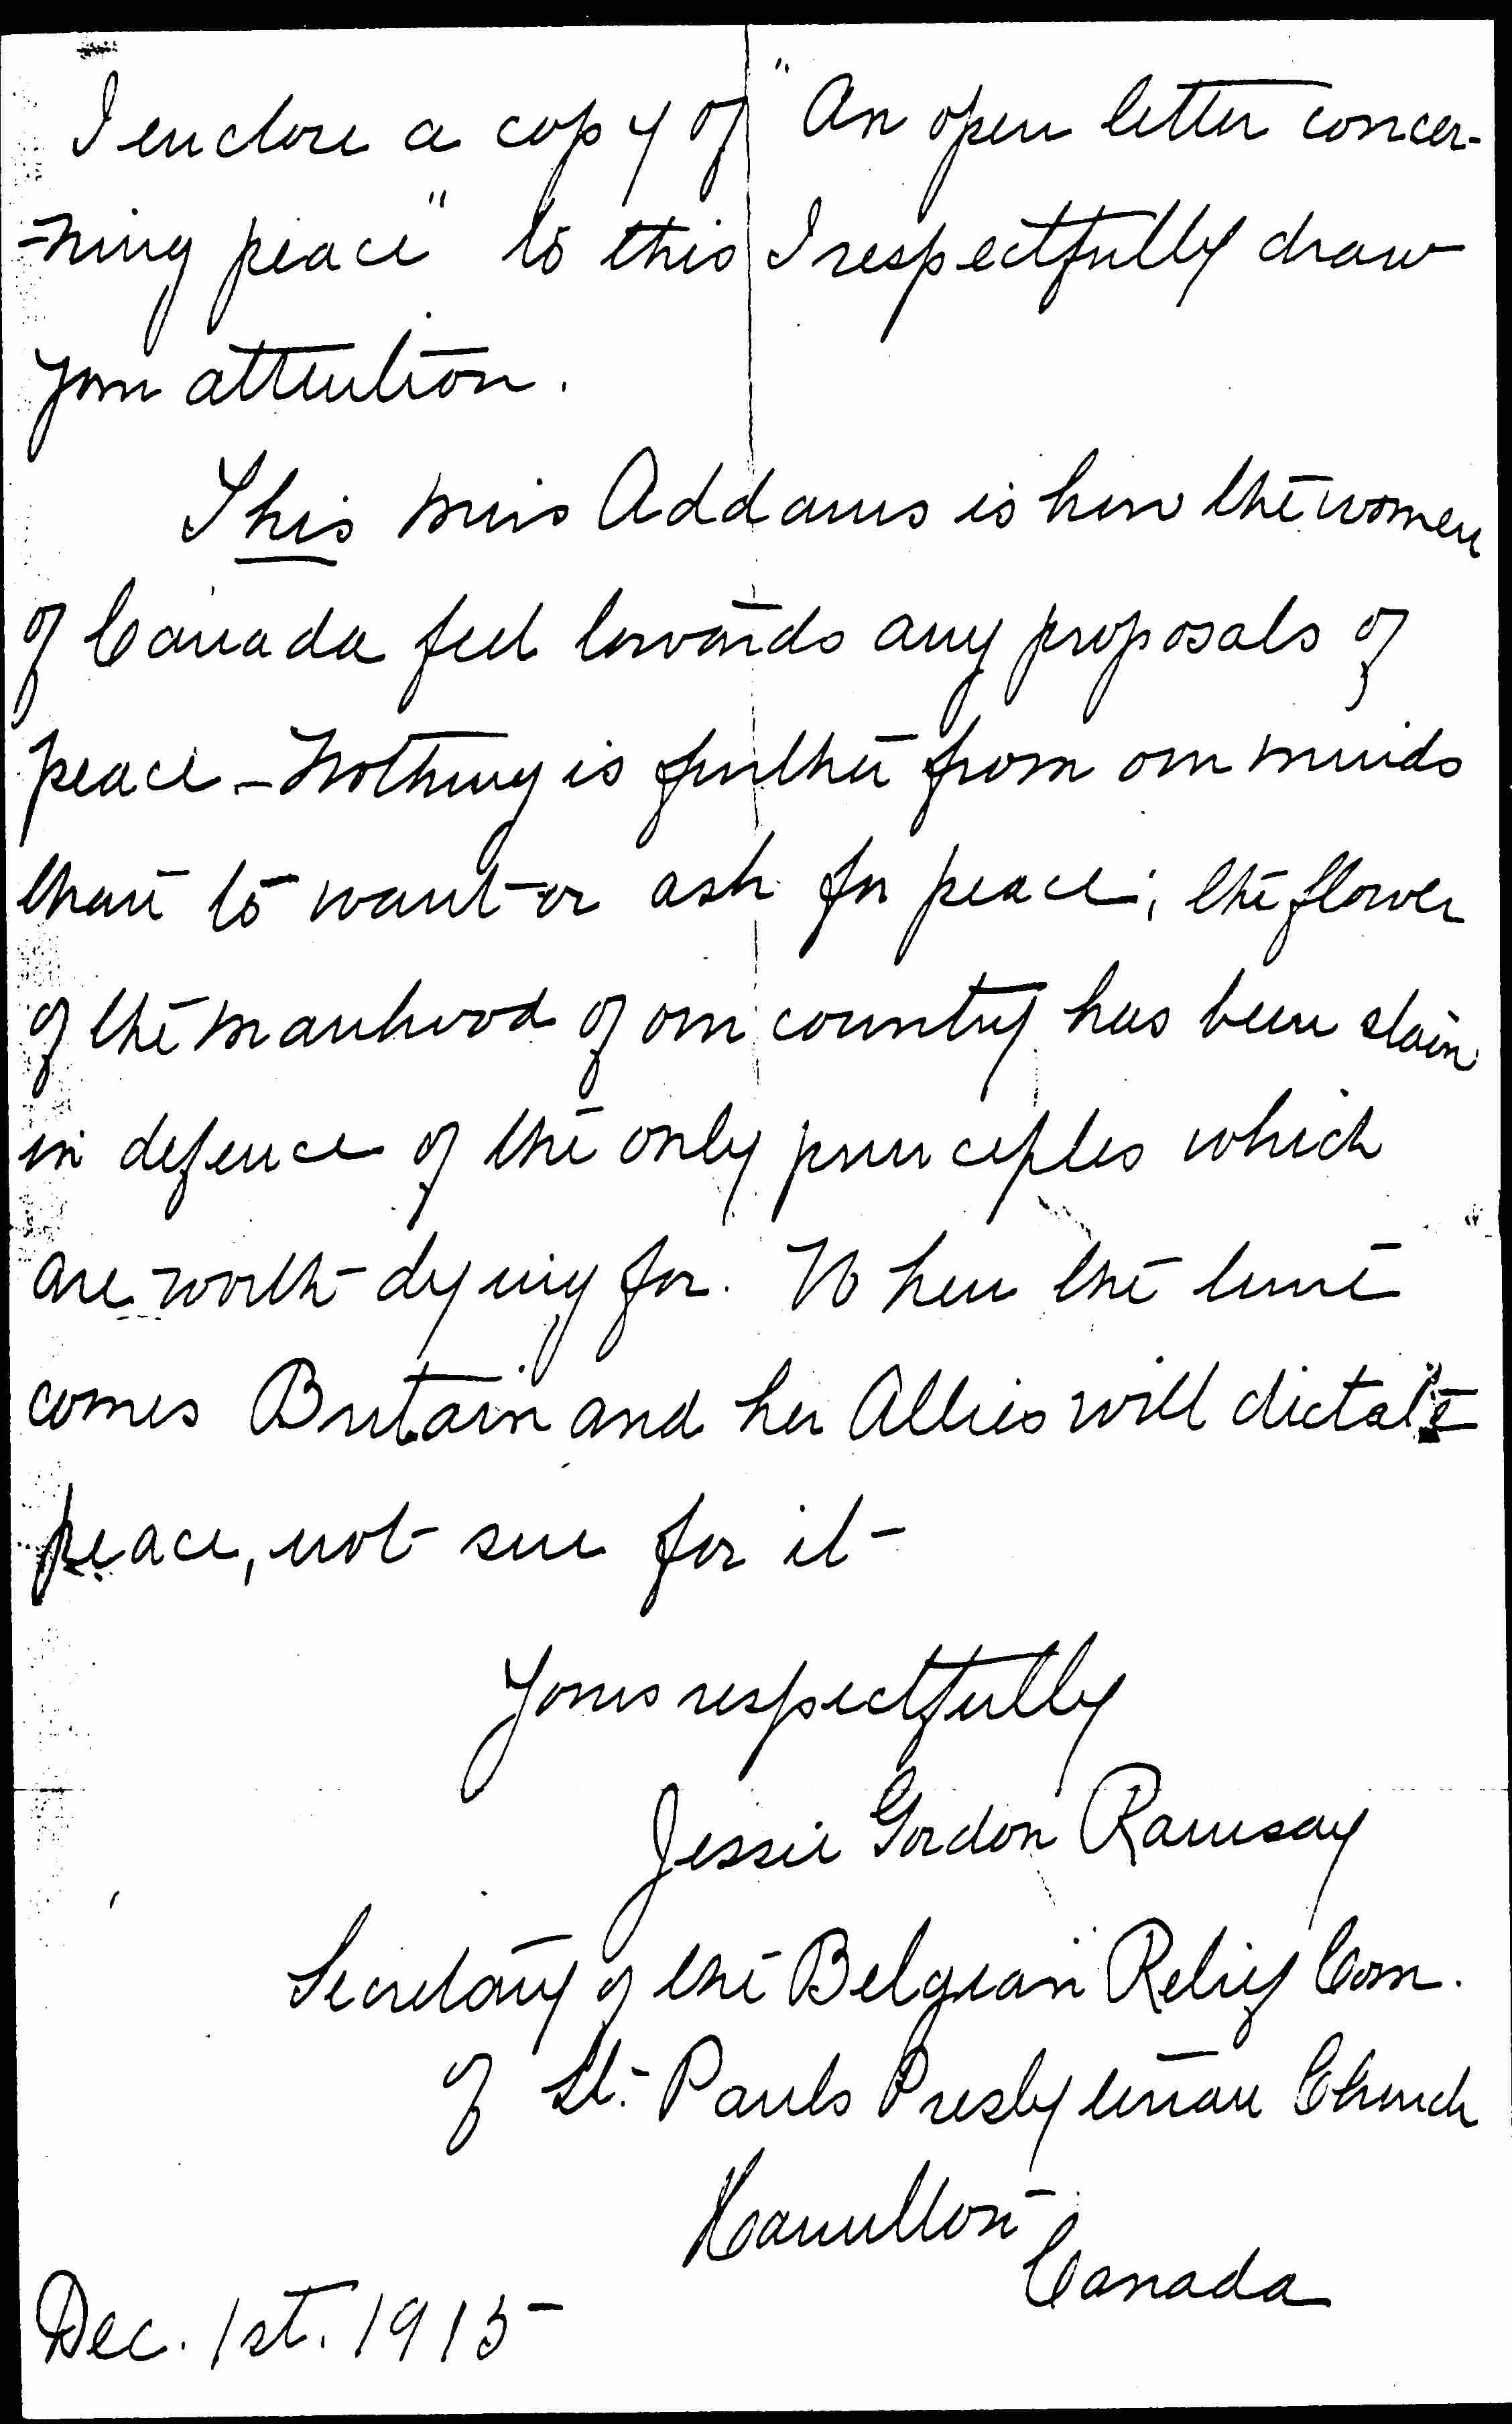 I enclose a copy of "An open letter concer-
-ning peace" to this I respectfully draw
your attention.
This Miss Addams is how the women
of Canada feel towards any proposals of
peace - Nothing is further from our minds
than to want or ask for peace; the flower
of the manhood of our country has been slain
in defence of the only principles which
are worth dying for. When the time
comes Britain and her Allies will dictate
peace, not sue for it -
Yours respectfully
Jessie Gordon Ramsay
Secretary of the Belgian Relief Com.
of St. Pauls Presbyterian Church
Hamilton
Canada
Dec. 1st. 1915